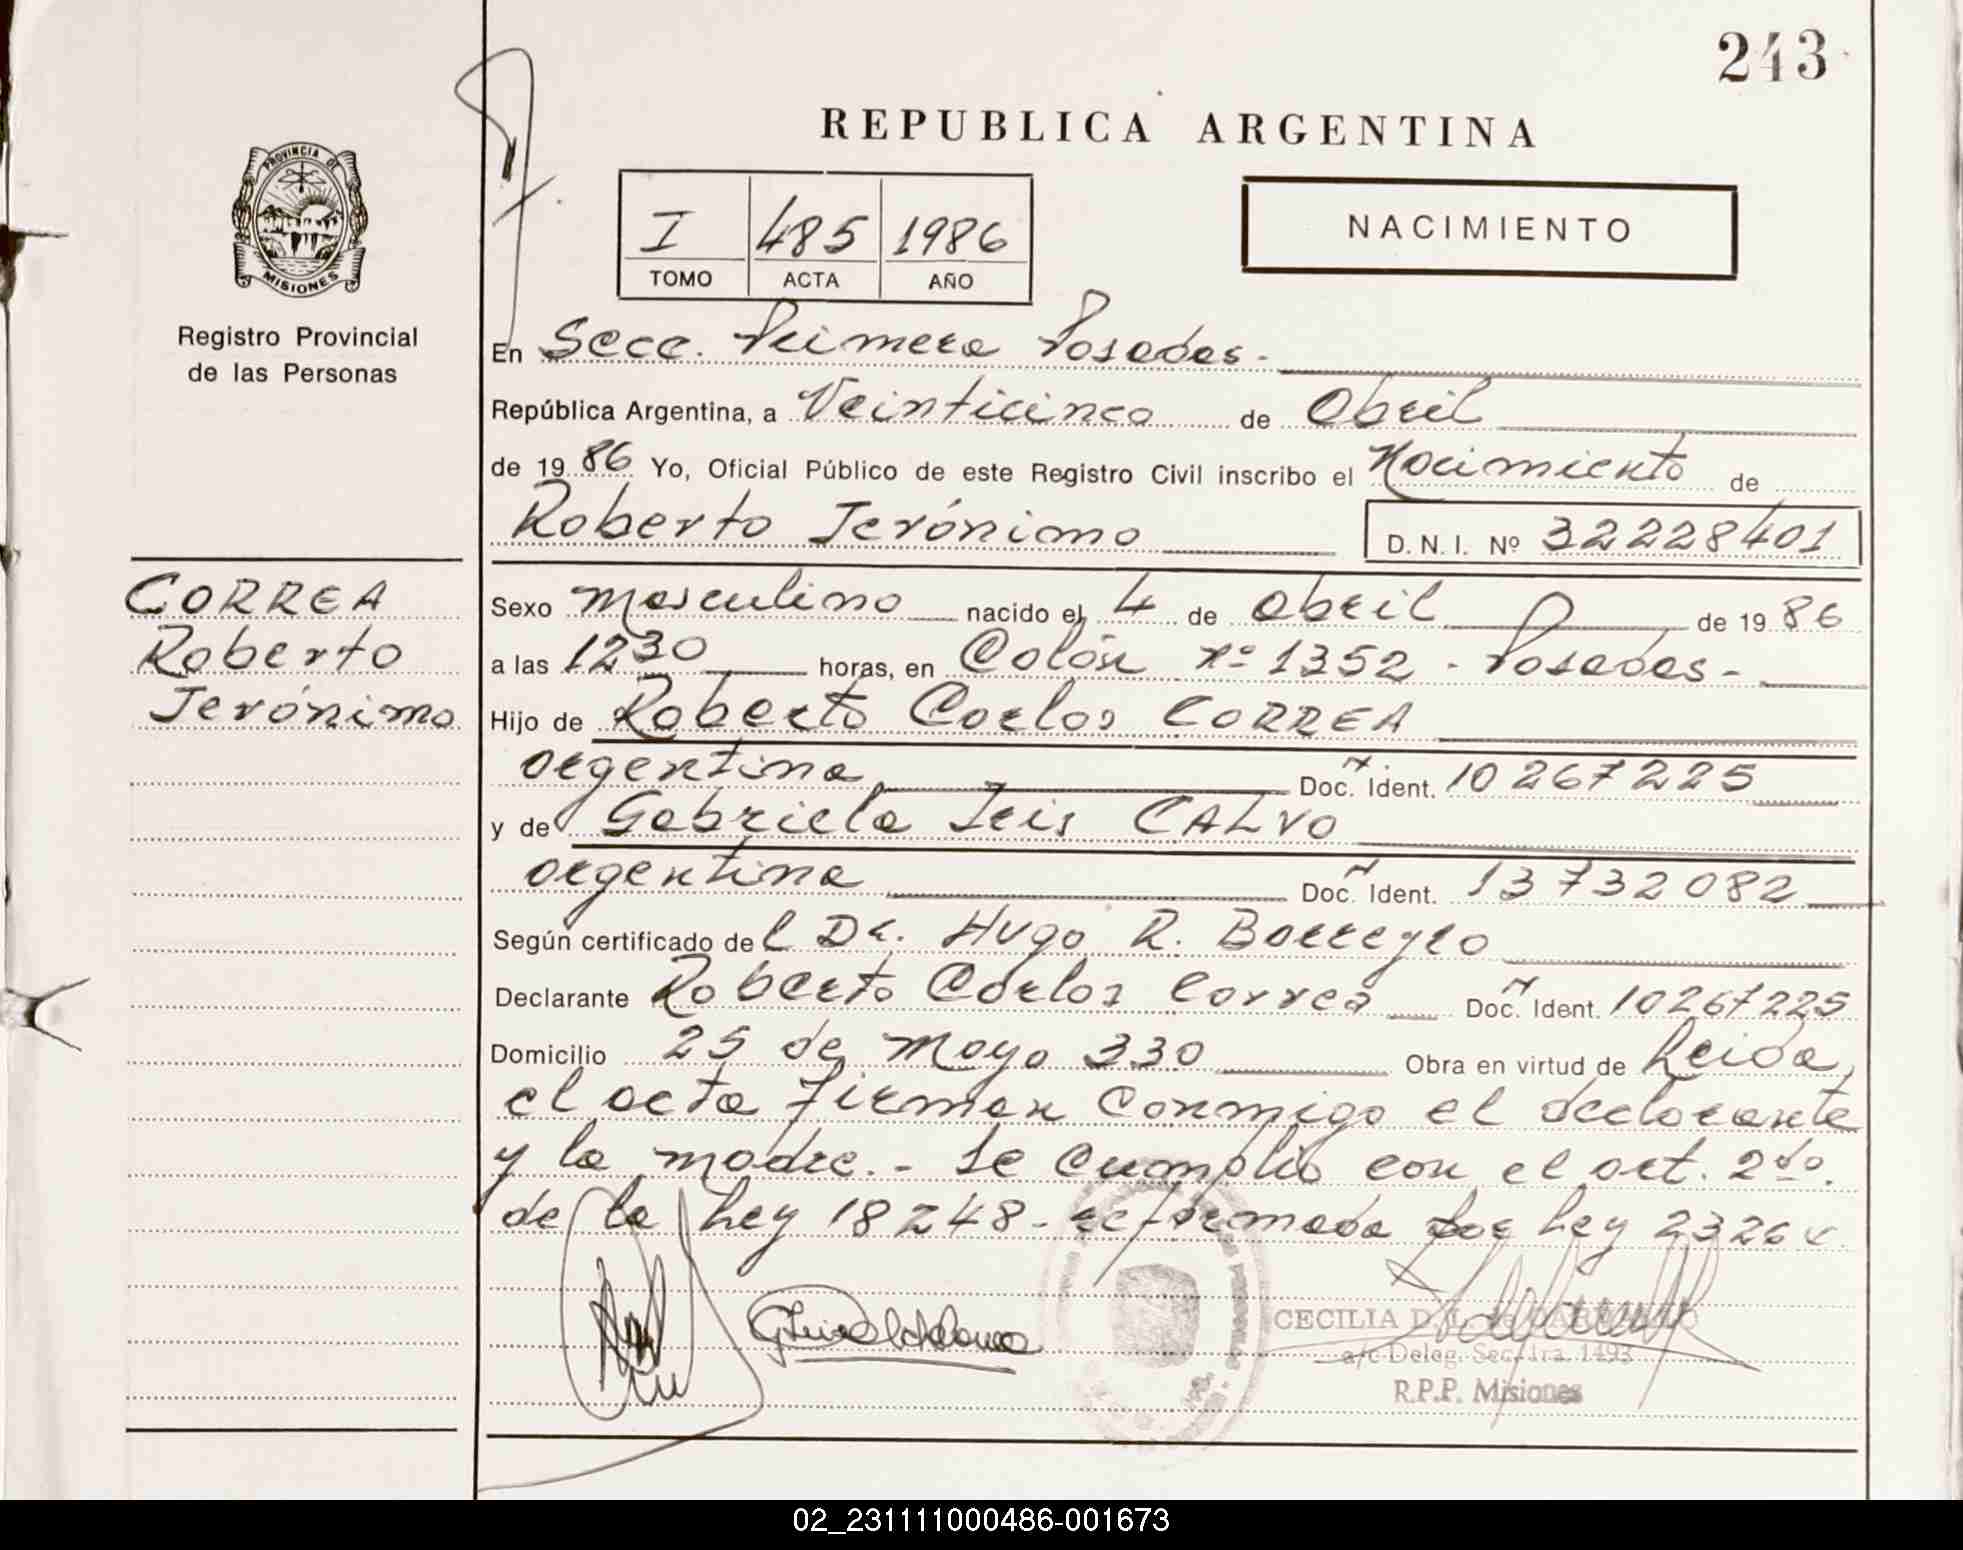 243
REPUBLICA ARGENTINA
PROVINCIA DE
MISIONES
Registro Provincial
de las Personas
I 485 1986
TOMO ACTA AÑO
NACIMIENTO
En Secc. Primera Posadas.-
República Argentina, a Veinticinco de Abril
de 1986 Yo, Oficial Público de este Registro Civil inscribo el Nacimiento de
Roberto Jerónimo D. N. I. Nº 32228401
CORREA
Roberto
Jerónimo
Sexo masculino nacido el 4 de abril de 1986
a las 1230 horas, en Colón nº 1352 - Posadas-
Hijo de Roberto Carlos CORREA
argentina Doc. Ident. 10267225
y de Gabriela Iris CALVO
argentina Doc. Ident. 13732082
Según certificado del Dr. Hugo R. Borreyro
Declarante Roberto Carlos Correa Doc. Ident. 10267225
Domicilio 25 de Mayo 330 Obra en virtud de Leida
el acta firman conmigo el declarante
y la madre.- Se cumplió con el art. 2do.
de la Ley 18248- reformada por Ley 23264
CECILIA D. L. de
a/c Deleg. Sec. 1ra. 1493
R.P.P. Misiones
02_231111000486-001673